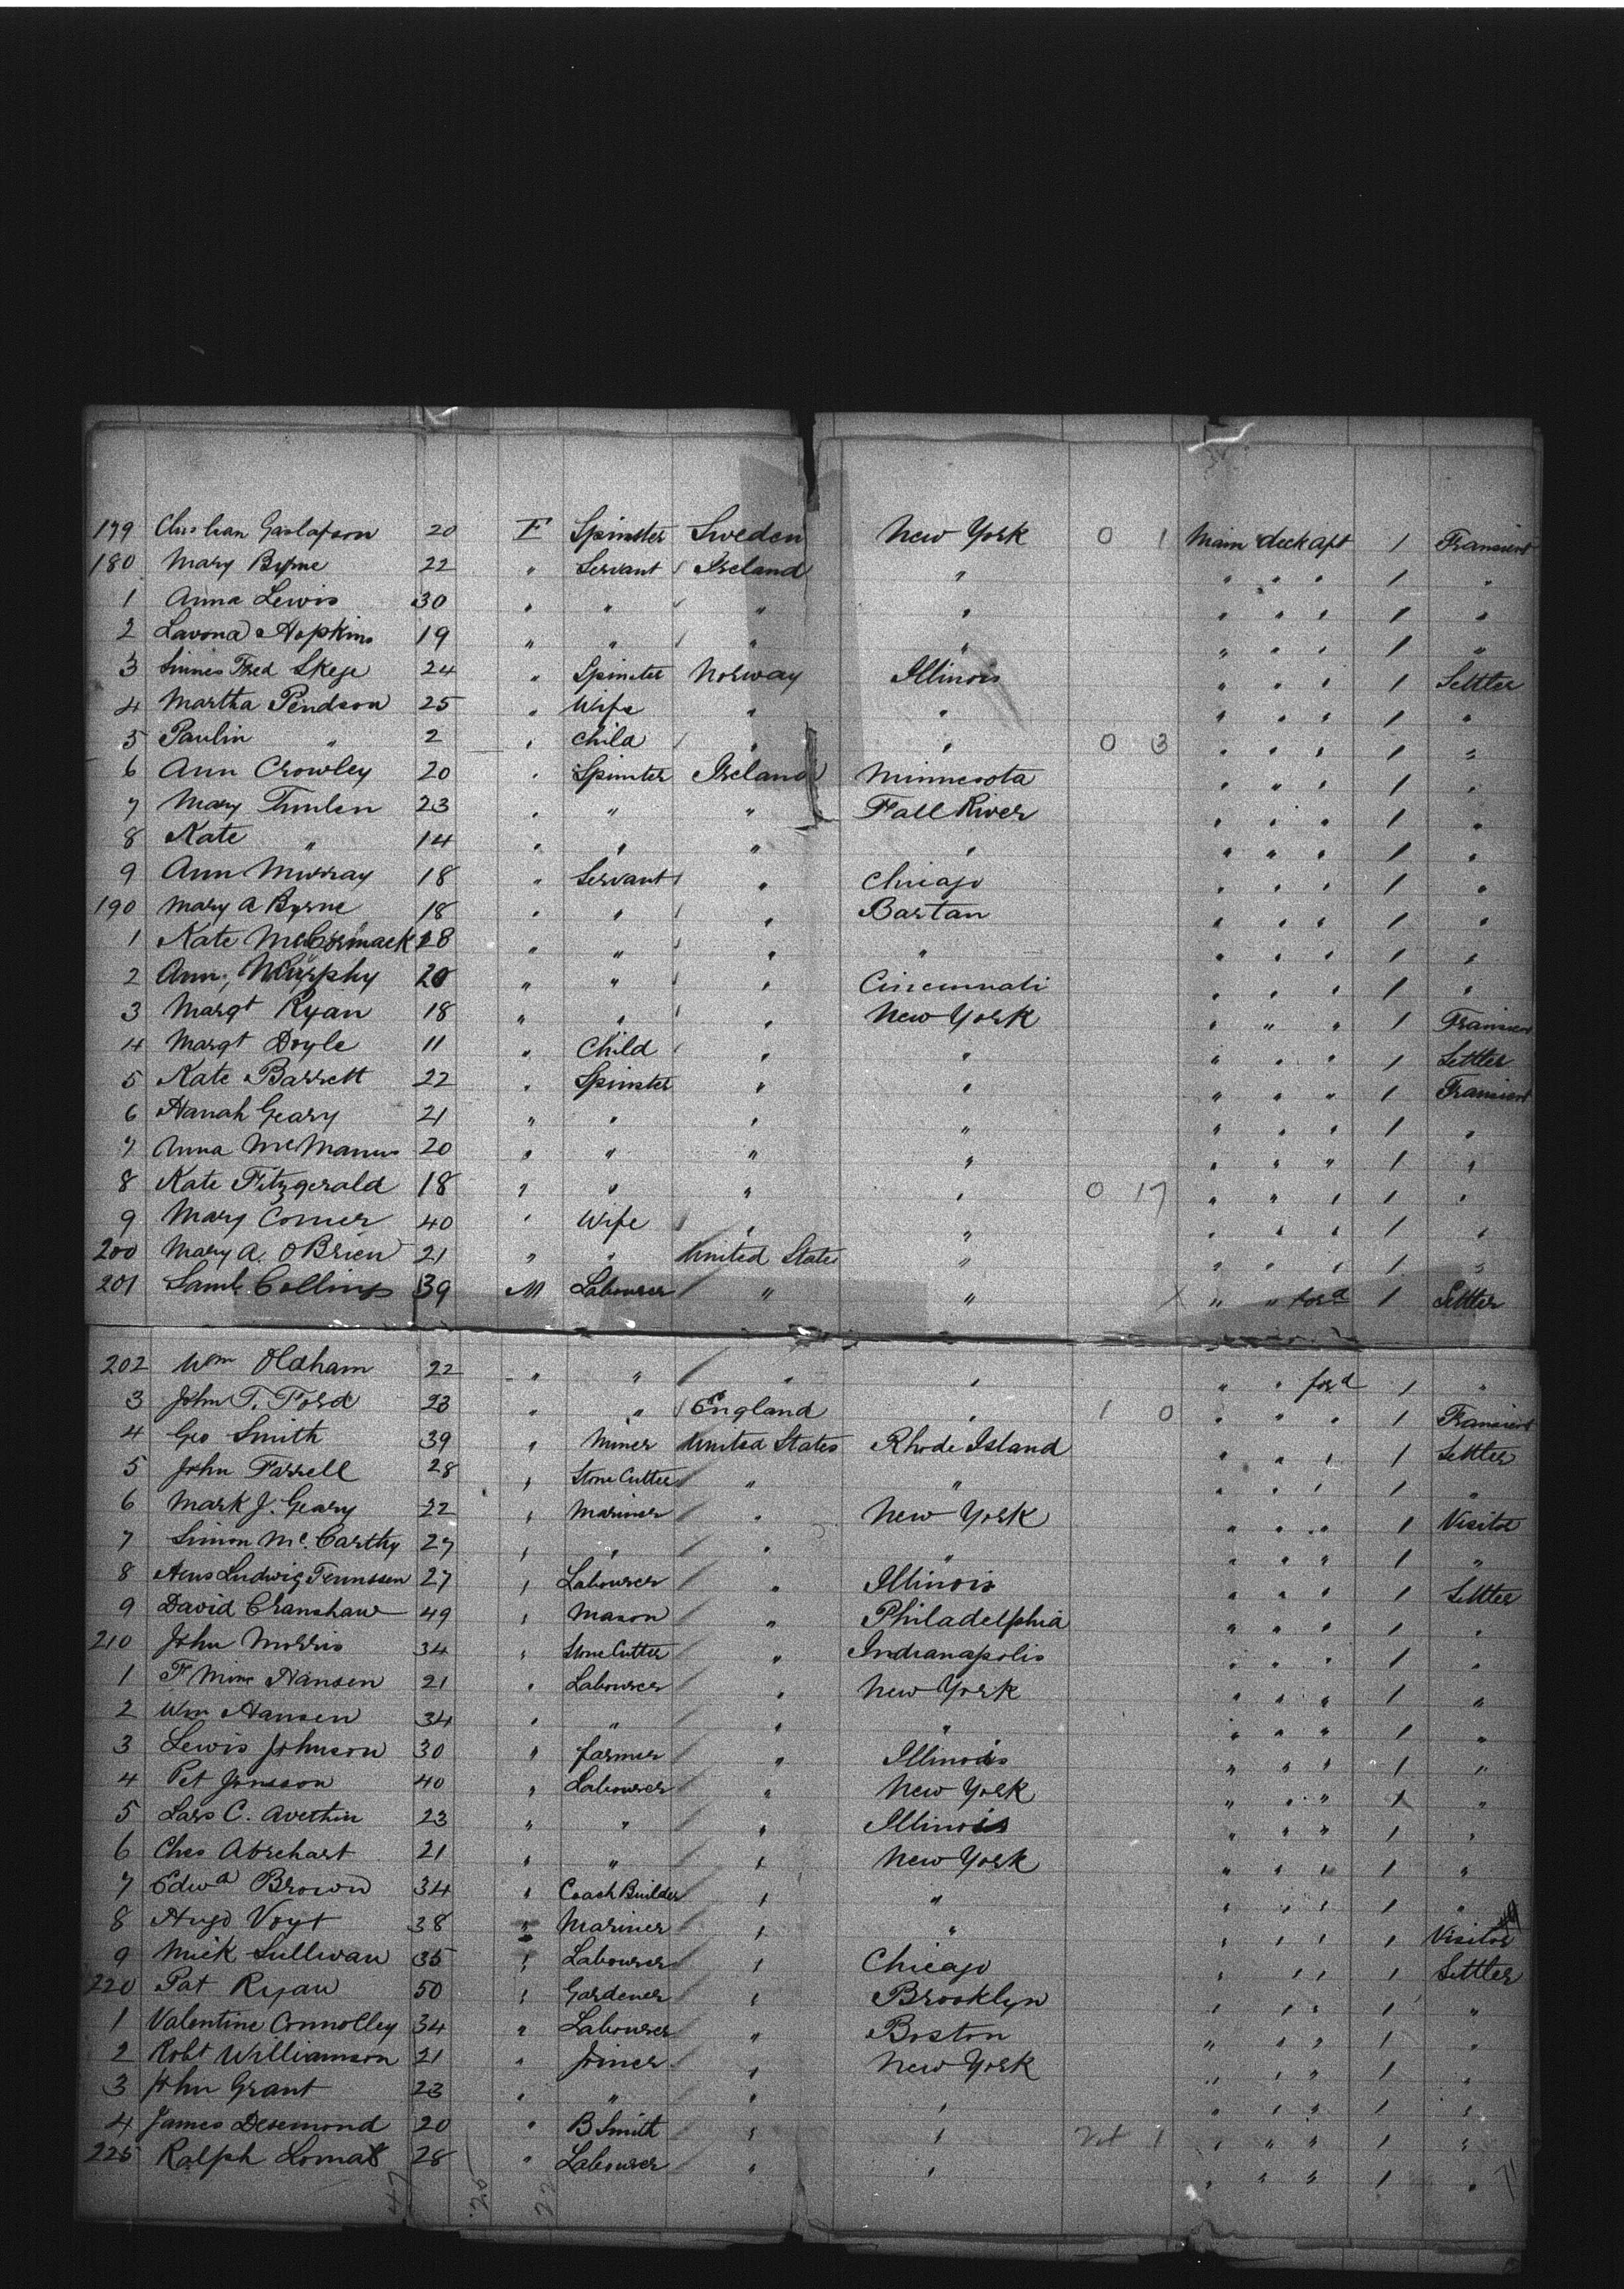 179 Christian Gustafson 20 F Spinster Sweden New York 0 1 Main deck aft 1 Transient
180 Mary Byrne 22 " Servant Ireland " " " " 1 "
1 Anna Lewis 30 " " " " " " " 1 "
2 Lavona Hopkins 19 " " " " " " " 1 "
3 Fred Skeje 24 " Spinster Norway Illinois " " " 1 Settler
4 Martha Pendson 25 " Wife " " " " " 1 "
5 Paulin " 2 " Child " " 0 3 " " " 1 "
6 Ann Crowley 20 " Spinster Ireland Minnesota " " " 1 "
7 Mary Timlen 23 " " " Fall River " " " 1 "
8 Kate " 14 " " " " " " " 1 "
9 Ann Murray 18 " Servant " Chicago " " " 1 "
190 Mary A Byrne 18 " " " Bartan " " " 1 "
1 Kate McCormack 28 " " " " " " " 1 "
2 Ann Murphy 20 " " " Cincinnati " " " 1 "
3 Margt Ryan 18 " " " New York " " " 1 Transient
4 Margt Doyle 11 " Child " " " " " 1 Settler
5 Kate Barrett 22 " Spinster " " " " " 1 Transient
6 Hanah Geary 21 " " " " " " " 1 "
7 Anna McManus 20 " " " " " " " 1 "
8 Kate Fitzgerald 18 " " " " 0 17 " " " 1 "
9 Mary Comer 40 " Wife " " " " " 1 "
200 Mary A. OBrien 21 " " United States " " " " 1 "
201 Saml Collins 39 M Labourer " " X " " ford 1 Settler
202 Wm Oldham 22 " " " " " " ford 1 "
3 John T. Ford 23 " " England " 1 0 " " " 1 Transient
4 Geo Smith 39 " Miner United States Rhode Island " " " 1 Settler
5 John Farrell 28 " Stone Cutter " " " " " 1 "
6 Mark J. Geary 22 " Mariner " New York " " " 1 Visitor
7 Simon McCarthy 27 " " " " " " " 1 "
8 Ludwig Tennssen 27 " Labourer " Illinois " " " 1 Settler
9 David Cranshaw 49 " Mason " Philadelphia " " " 1 "
210 John Morris 34 " Stone Cutter " Indianapolis " " " 1 "
1 F Hansen 21 " Labourer " New York " " " 1 "
2 Wm Hansen 34 " " " " " " " 1 "
3 Lewis Johnson 30 " farmer " Illinois " " " 1 "
4 Pet Jonsson 40 " Labourer " New York " " " 1 "
5 Lars C. Avesthin 23 " " " Illinois " " " 1 "
6 Chas Abrehart 21 " " " New York " " " 1 "
7 Edwd Brown 34 " Coach Builder " " " " " 1 "
8 Hugo Voyt 38 " Mariner " " " " " 1 Visitor
9 Mick Sullivan 35 " Labourer " Chicago " " " 1 Settler
220 Pat Ryan 50 " Gardener " Brooklyn " " " 1 "
1 Valentine Connolley 34 " Labourer " Boston " " " 1 "
2 Robt Williamson 21 " Joiner " New York " " " 1 "
3 John Grant 23 " " " " " " " 1 "
4 James Desemond 20 " B Smith " " 1 " " " 1 "
225 Ralph Lomax 28 " Labourer " " " " " 1 "
47 25 22